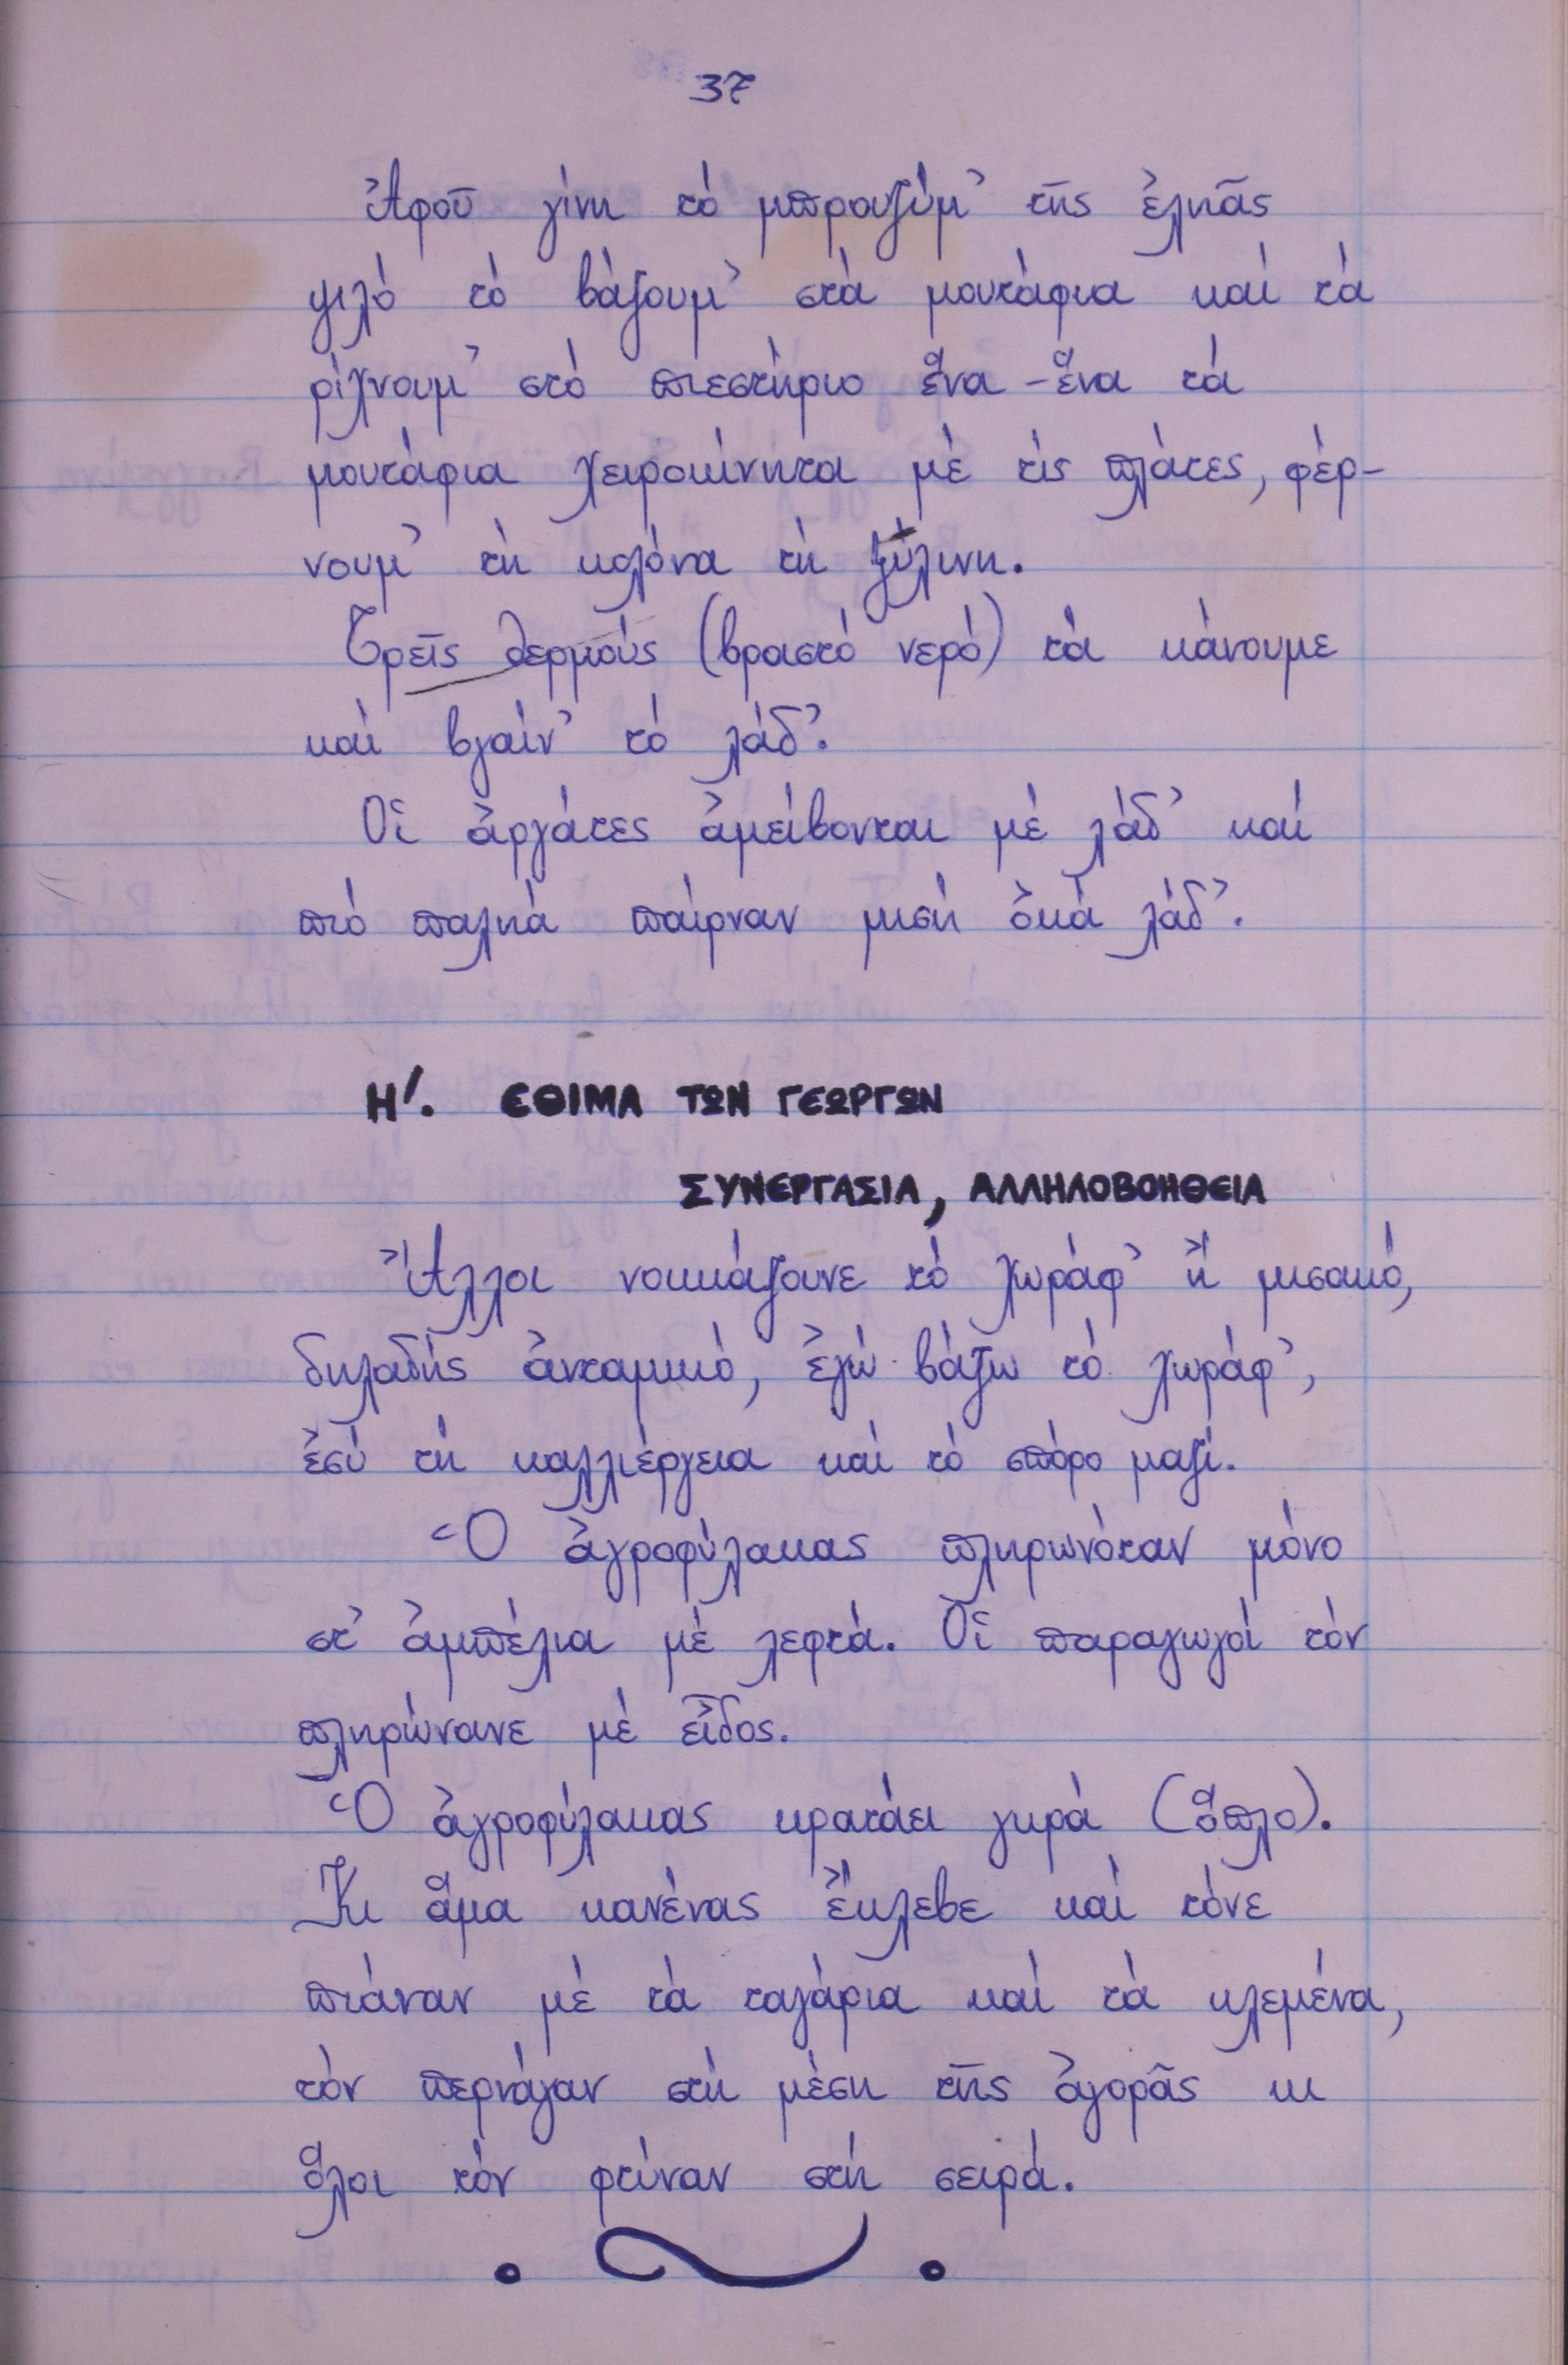 37
Ἀφοῦ γίνη τό μπραζύμ' τῆς ἐληᾶς
ψιλό τό βάζουμ' στά μουτάφια καί τά
ρίχνουμ' στό πιεστήριο ἕνα-ἕνα τά
μουτάφια χειροκίνητα μέ τίς πλάτες, φέρ-
νουμ' τή κολόνα τή ξύλινη.
Τρεῖς θερμούς (βραστό νερό) τά κάνουμε
καί βγαίν' τό λάδ'.
Οἱ ἀργάτες ἀμείβονται μέ λάδ' καί
πιό παληά παίρναν μισή ὀκά λάδ'.
Η'. ΕΘΙΜΑ ΤΩΝ ΓΕΩΡΓΩΝ
ΣΥΝΕΡΓΑΣΙΑ, ΑΛΛΗΛΟΒΟΗΘΕΙΑ
Ἄλλοι νοικιάζουνε τό χωράφ' ἤ μισακό,
δηλαδής ἀνταμικό, ἐγώ βάζω τό χωράφ',
ἐσύ τή καλλιέργεια καί τό σπόρο μαζί.
Ὁ ἀγροφύλακας πληρωνόταν μόνο
στ' ἀμπέλια μέ λεφτά. Οἱ παραγωγοί τόν
πληρώνανε μέ εἶδος.
Ὁ ἀγροφύλακας κρατάει γκρά (ὅπλο).
Κι ἅμα κανένας ἔκλεβε καί τόνε
πιάναν μέ τά ταγάρια καί τά κλεμένα,
τόν περνάγαν στή μέση τῆς ἀγορᾶς κι
ὅλοι τόν φτύναν στή σειρά.